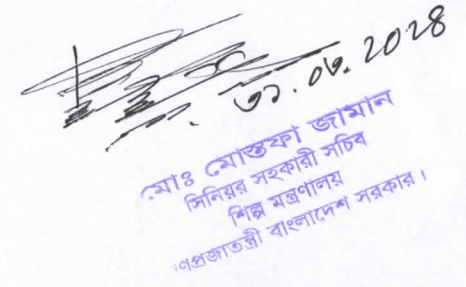 ৩১.০৩.২০২৪
মোঃ মোস্তফা জামান
সিনিয়র সহকারী সচিব
শিল্প মন্ত্রণালয়
ণপ্রজাতন্ত্রী বাংলাদেশ সরকার।